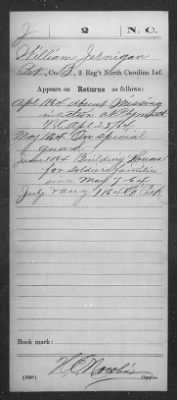 J 2 N.C.
William Jernigan
Pvt, Co. J, 2 Reg't North Carolina Inf.
Appears on Returns as follows:
Apl 1864 Absent Missing
in action at Plymouth
N.C. Apl 23/64
May 1864 On special
guard
June 1864 Building Houses
for soldiers families
since May 7-64
July & Aug 1864
Book mark:
(546)
Copyist.